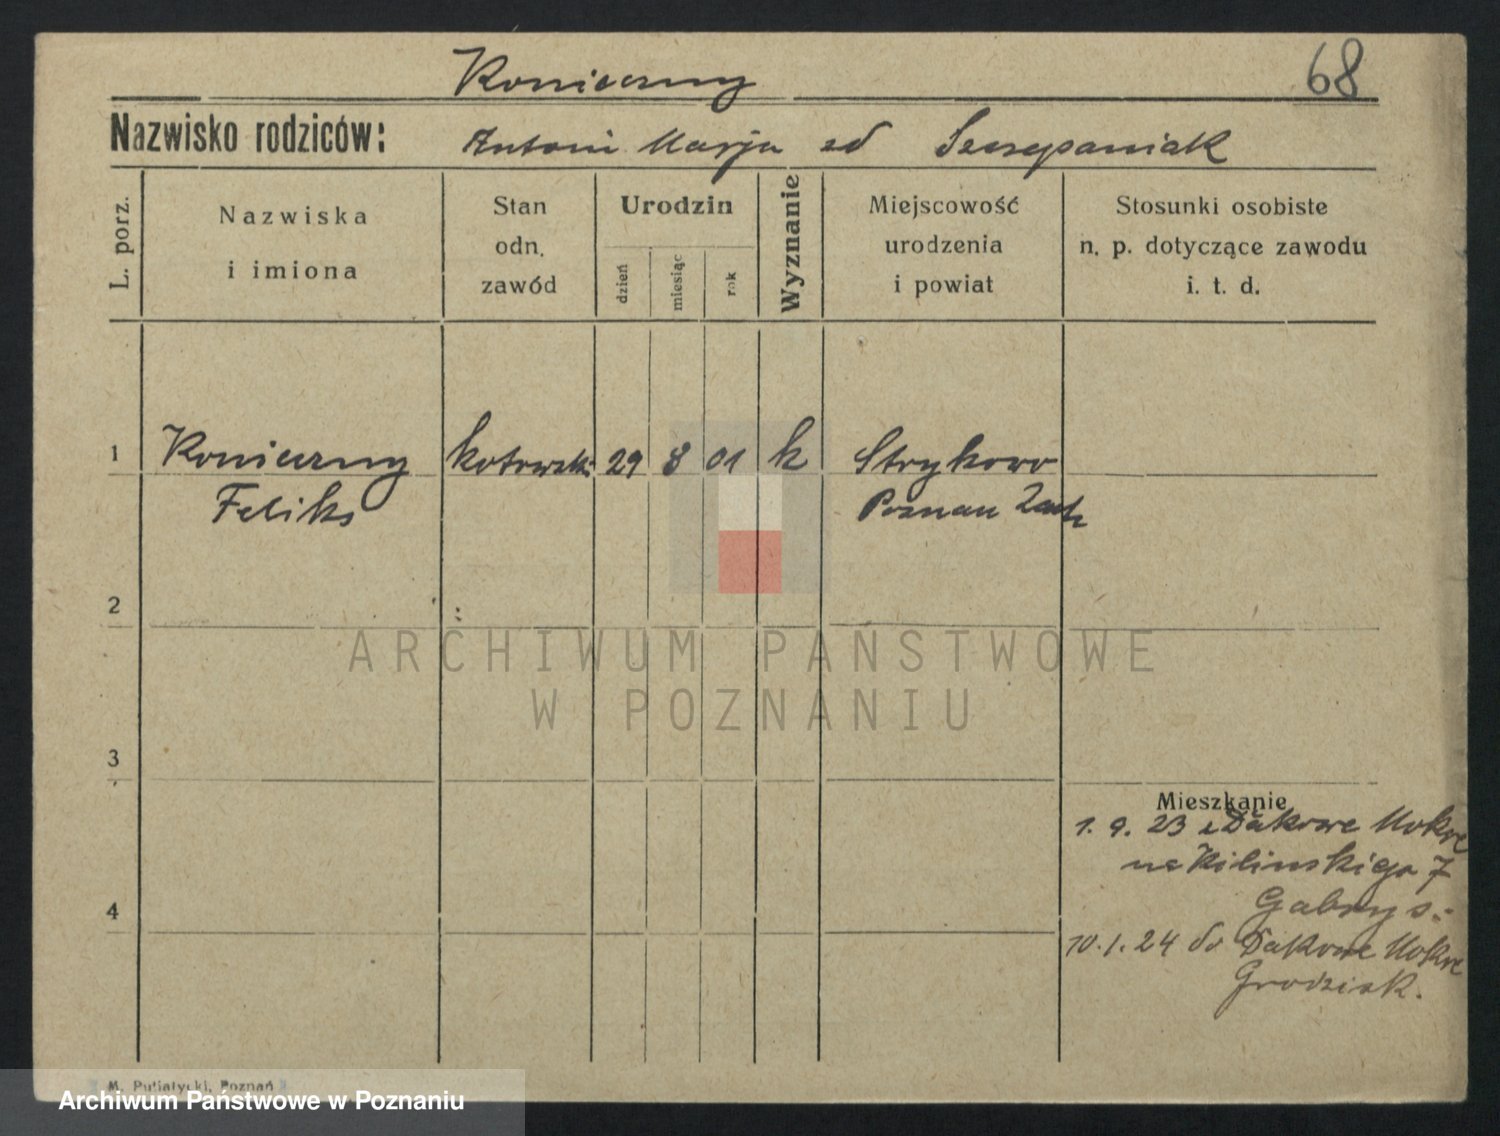 Konieczny
68
Nazwisko rodziców: Antoni Marja zd Szczepaniak
L. porz.
Nazwiska
i imiona
Stan
odn.
zawód
Urodzin
dzień
miesiąc
rok
Wyznanie
Miejscowość
urodzenia
i powiat
Stosunki osobiste
n. p. dotyczące zawodu
i. t. d.
1 Konieczny kotowski 29 8 01 k Strykowo
Feliks Poznan Zach
2
3
4
Mieszkanie
1. 9. 23 z Dakowe Mokre
na Kilinskiego 7
Gabrys:
10. 1. 24 do Dakowe Mokre
Grodzisk.
M. Putiatycki, Poznań
ARCHIWUM PAŃSTWOWE
W POZNANIU
Archiwum Państwowe w Poznaniu